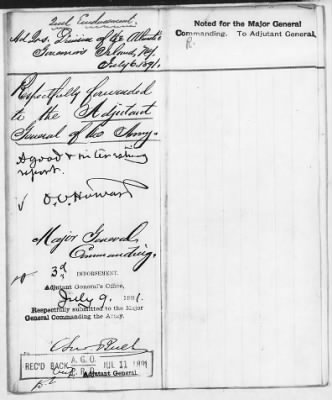 2nd Endorsement.
Hd. Qrs. Division of the Atlantic
Governors Island, N.Y.
July 6. 1891.
Respectfully forwarded
to the Adjutant
General of the Army.
A good & interesting
report.
O. O. Howard
Major General
Commanding.
3d
INDORSEMENT.
Adjutant General's Office,
July 9, 1891.
Respectfully submitted to the Major
General Commanding the Army.
A. G. O.
REC'D BACK JUL 11 1891
Adjutant General.
Noted for the Major General
Commanding. To Adjutant General,